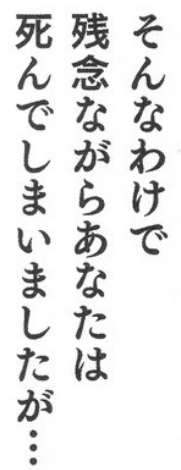 そんなわけで
残念ながらあなたは
死んでしまいましたが…